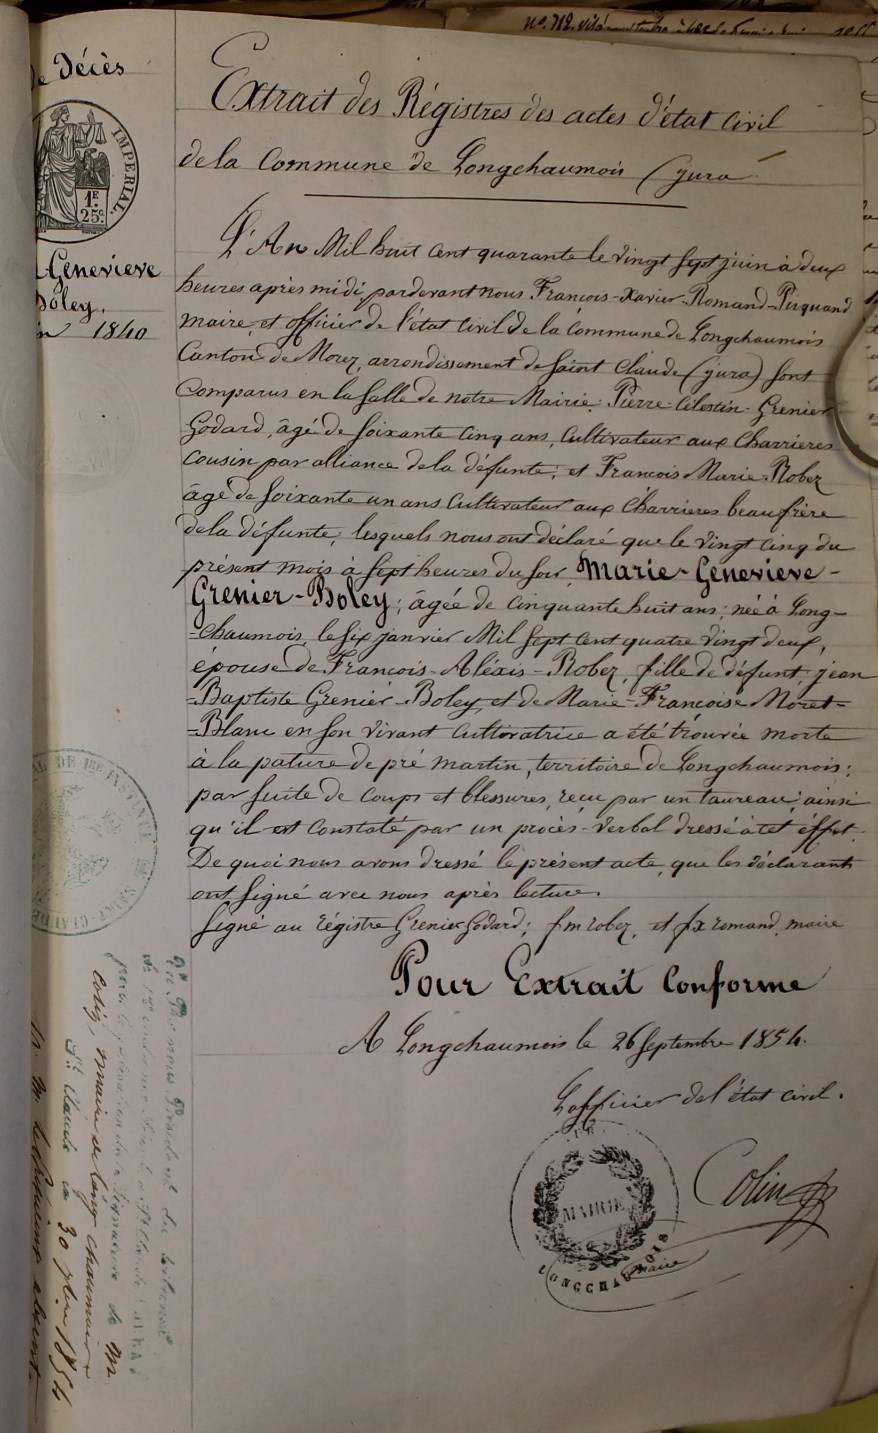 nº. 712.
de Décès
IMPERIAL.
1F
25c.
Genevieve
Boley.
1840
Extrait des Régistres des actes d'état civil
de la Commune de Longchaumois (jura
L'An Mil huit cent quarante le vingt sept juin à deux
heures après midi pardevant nous François-Xavier-Romand-Piquand
maire, et officier de l'état civil de la commune de Longchaumois
Canton de Morez, arrondissement de saint Claude (jura) sont
Comparus en la salle de notre Mairie. Pierre Célestin-Grenier
Godard, âgé de soixante cinq ans, Cultivateur aux Charrieres
Cousin par alliance de la défunte; et François Marie-Robez
âgé de soixante un ans Cultivateur aux Charrieres beaufrère
de la défunte; lesquels nous ont déclaré que le vingt cinq du
présent mois à sept heures du soir, Marie-Genevieve-
Grenier-Boley; âgée de cinquante huit ans; née à Long-
-chaumois, le six janvier Mil sept cent quatre vingt deux,
épouse de François-Aléxis-Robez, fille de défunt jean
-Baptiste Grenier-Boley et de Marie-Françoise Moret-
-Blanc en son vivant cultivatrice a été trouvée morte
à la pature de pré martin, territoire de Longchaumois;
par suite de coups et blessures, reçu par un taureau, ainsi
qu'il est constaté par un procès-verbal dressé à cet effet.
De quoi nous avons dressé le présent acte, que les déclarants
ont signé avec nous après lecture.
signé au régistre Grenier Godard; fm robez, et fx romand, maire
Pour Extrait Conforme
A Longchaumois le 26 septembre 1854.
L'officier de l'état civil.
Colin
MAIRIE
LONGCHAUMOIS
maire
DE 1ère INSTANCE
SAINT-CLAUDE
Vu Par nous Président du tribunal
de 1ère instance
signature de M
Colin, maire de Longchaumois
St Claude le 30 7bre 1854